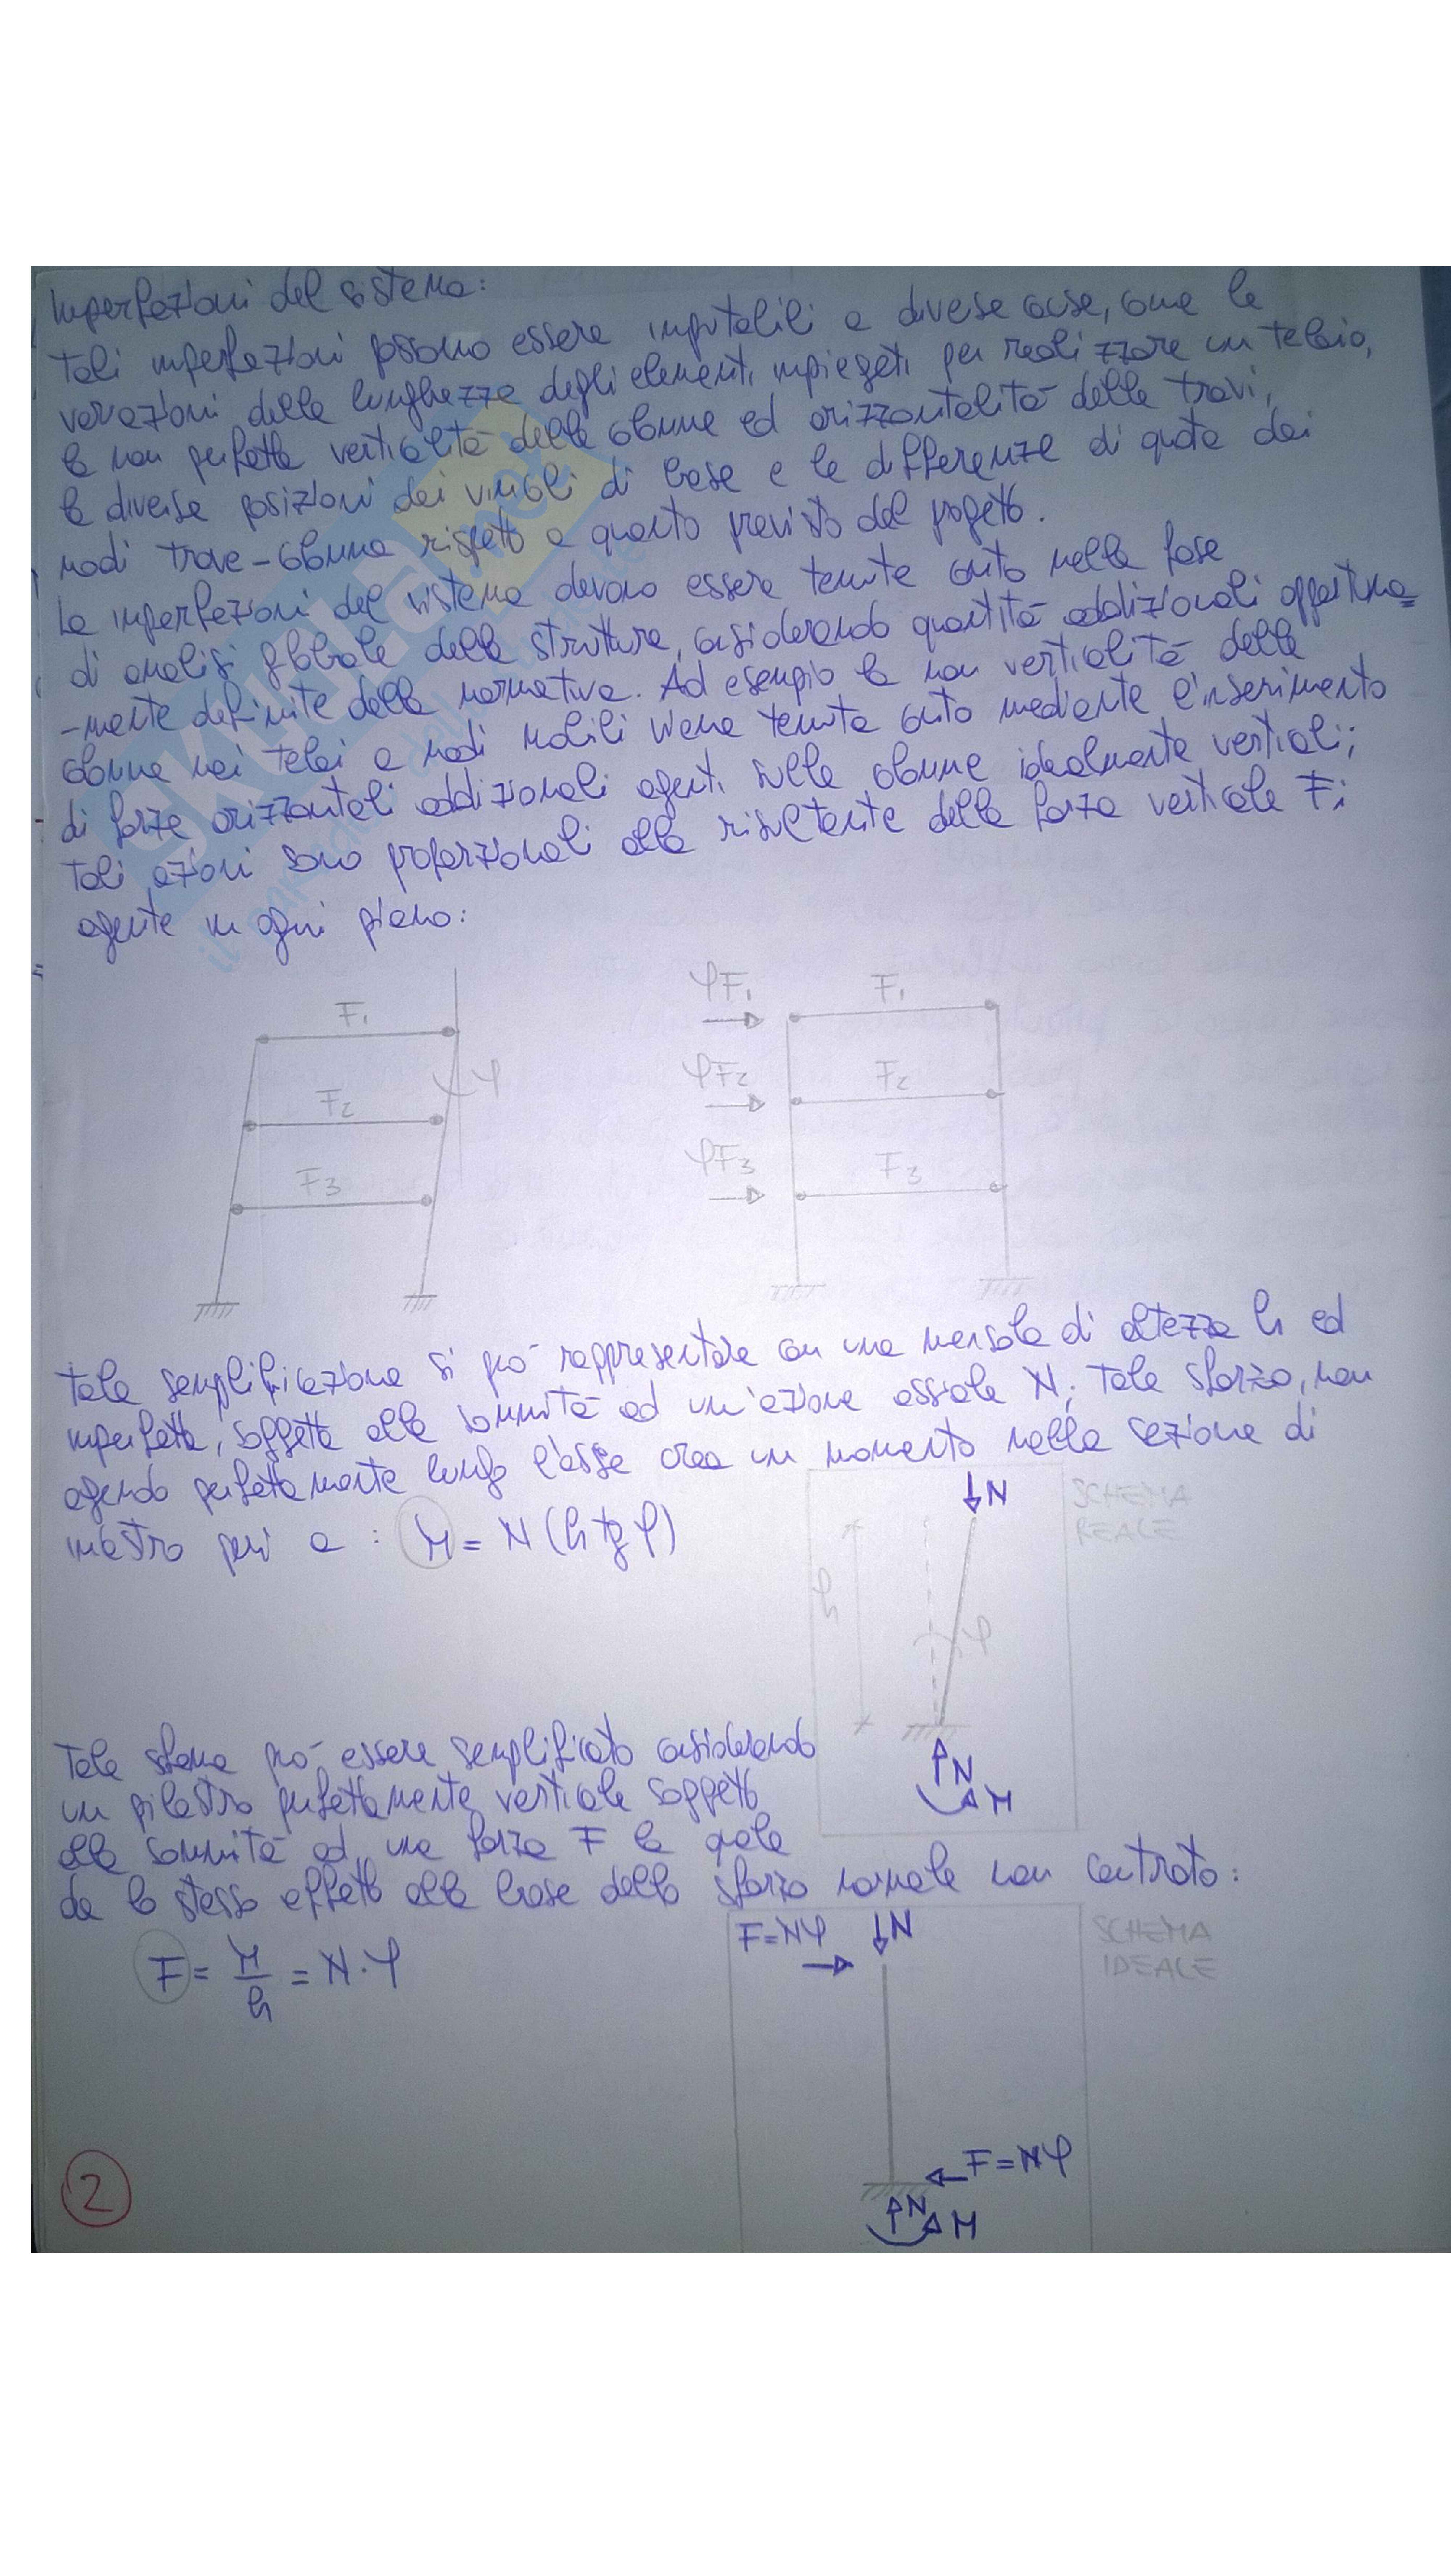 Imperfezioni del sistema:
Tali imperfezioni possono essere imputabili a diverse cause, come le
variazioni della lunghezza degli elementi impiegati per realizzare un telaio,
la non perfetta verticalità delle colonne ed orizzontalità delle travi,
le diverse posizioni dei vincoli di base e le differenze di quota dei
nodi trave-colonna rispetto a quanto previsto dal progetto.
Le imperfezioni del sistema devono essere tenute conto nella fase
di analisi globale della struttura, considerando quantità addizionali opportuna=
-mente definite dalla normativa. Ad esempio la non verticalità delle
colonne nei telai a nodi mobili viene tenuta conto mediante l'inserimento
di forze orizzontali addizionali agenti sulle colonne idealmente verticali;
Tali azioni sono proporzionali alla risultante della forza verticale Fi
agente in ogni piano:
F1
F2
F3
φ
φF1
φF2
φF3
F1
F2
F3
Tale semplificazione si può rappresentare con una mensola di altezza h ed
imperfetta, soggetta alla sommità ad un'azione assiale N; Tale sforzo, non
agendo perfettamente lungo l'asse crea un momento nella sezione di
incastro pari a: M = N (h tg φ)
N
SCHEMA
REALE
h
φ
N
M
Tale schema può essere semplificato considerando
un pilastro perfettamente verticale soggetto
alla sommità ad una forza F la quale
da lo stesso effetto alla base dello sforzo normale non centrato:
F = M/h = N·φ
F=Nφ
N
SCHEMA
IDEALE
F=Nφ
N
M
2
SKUOLA.net